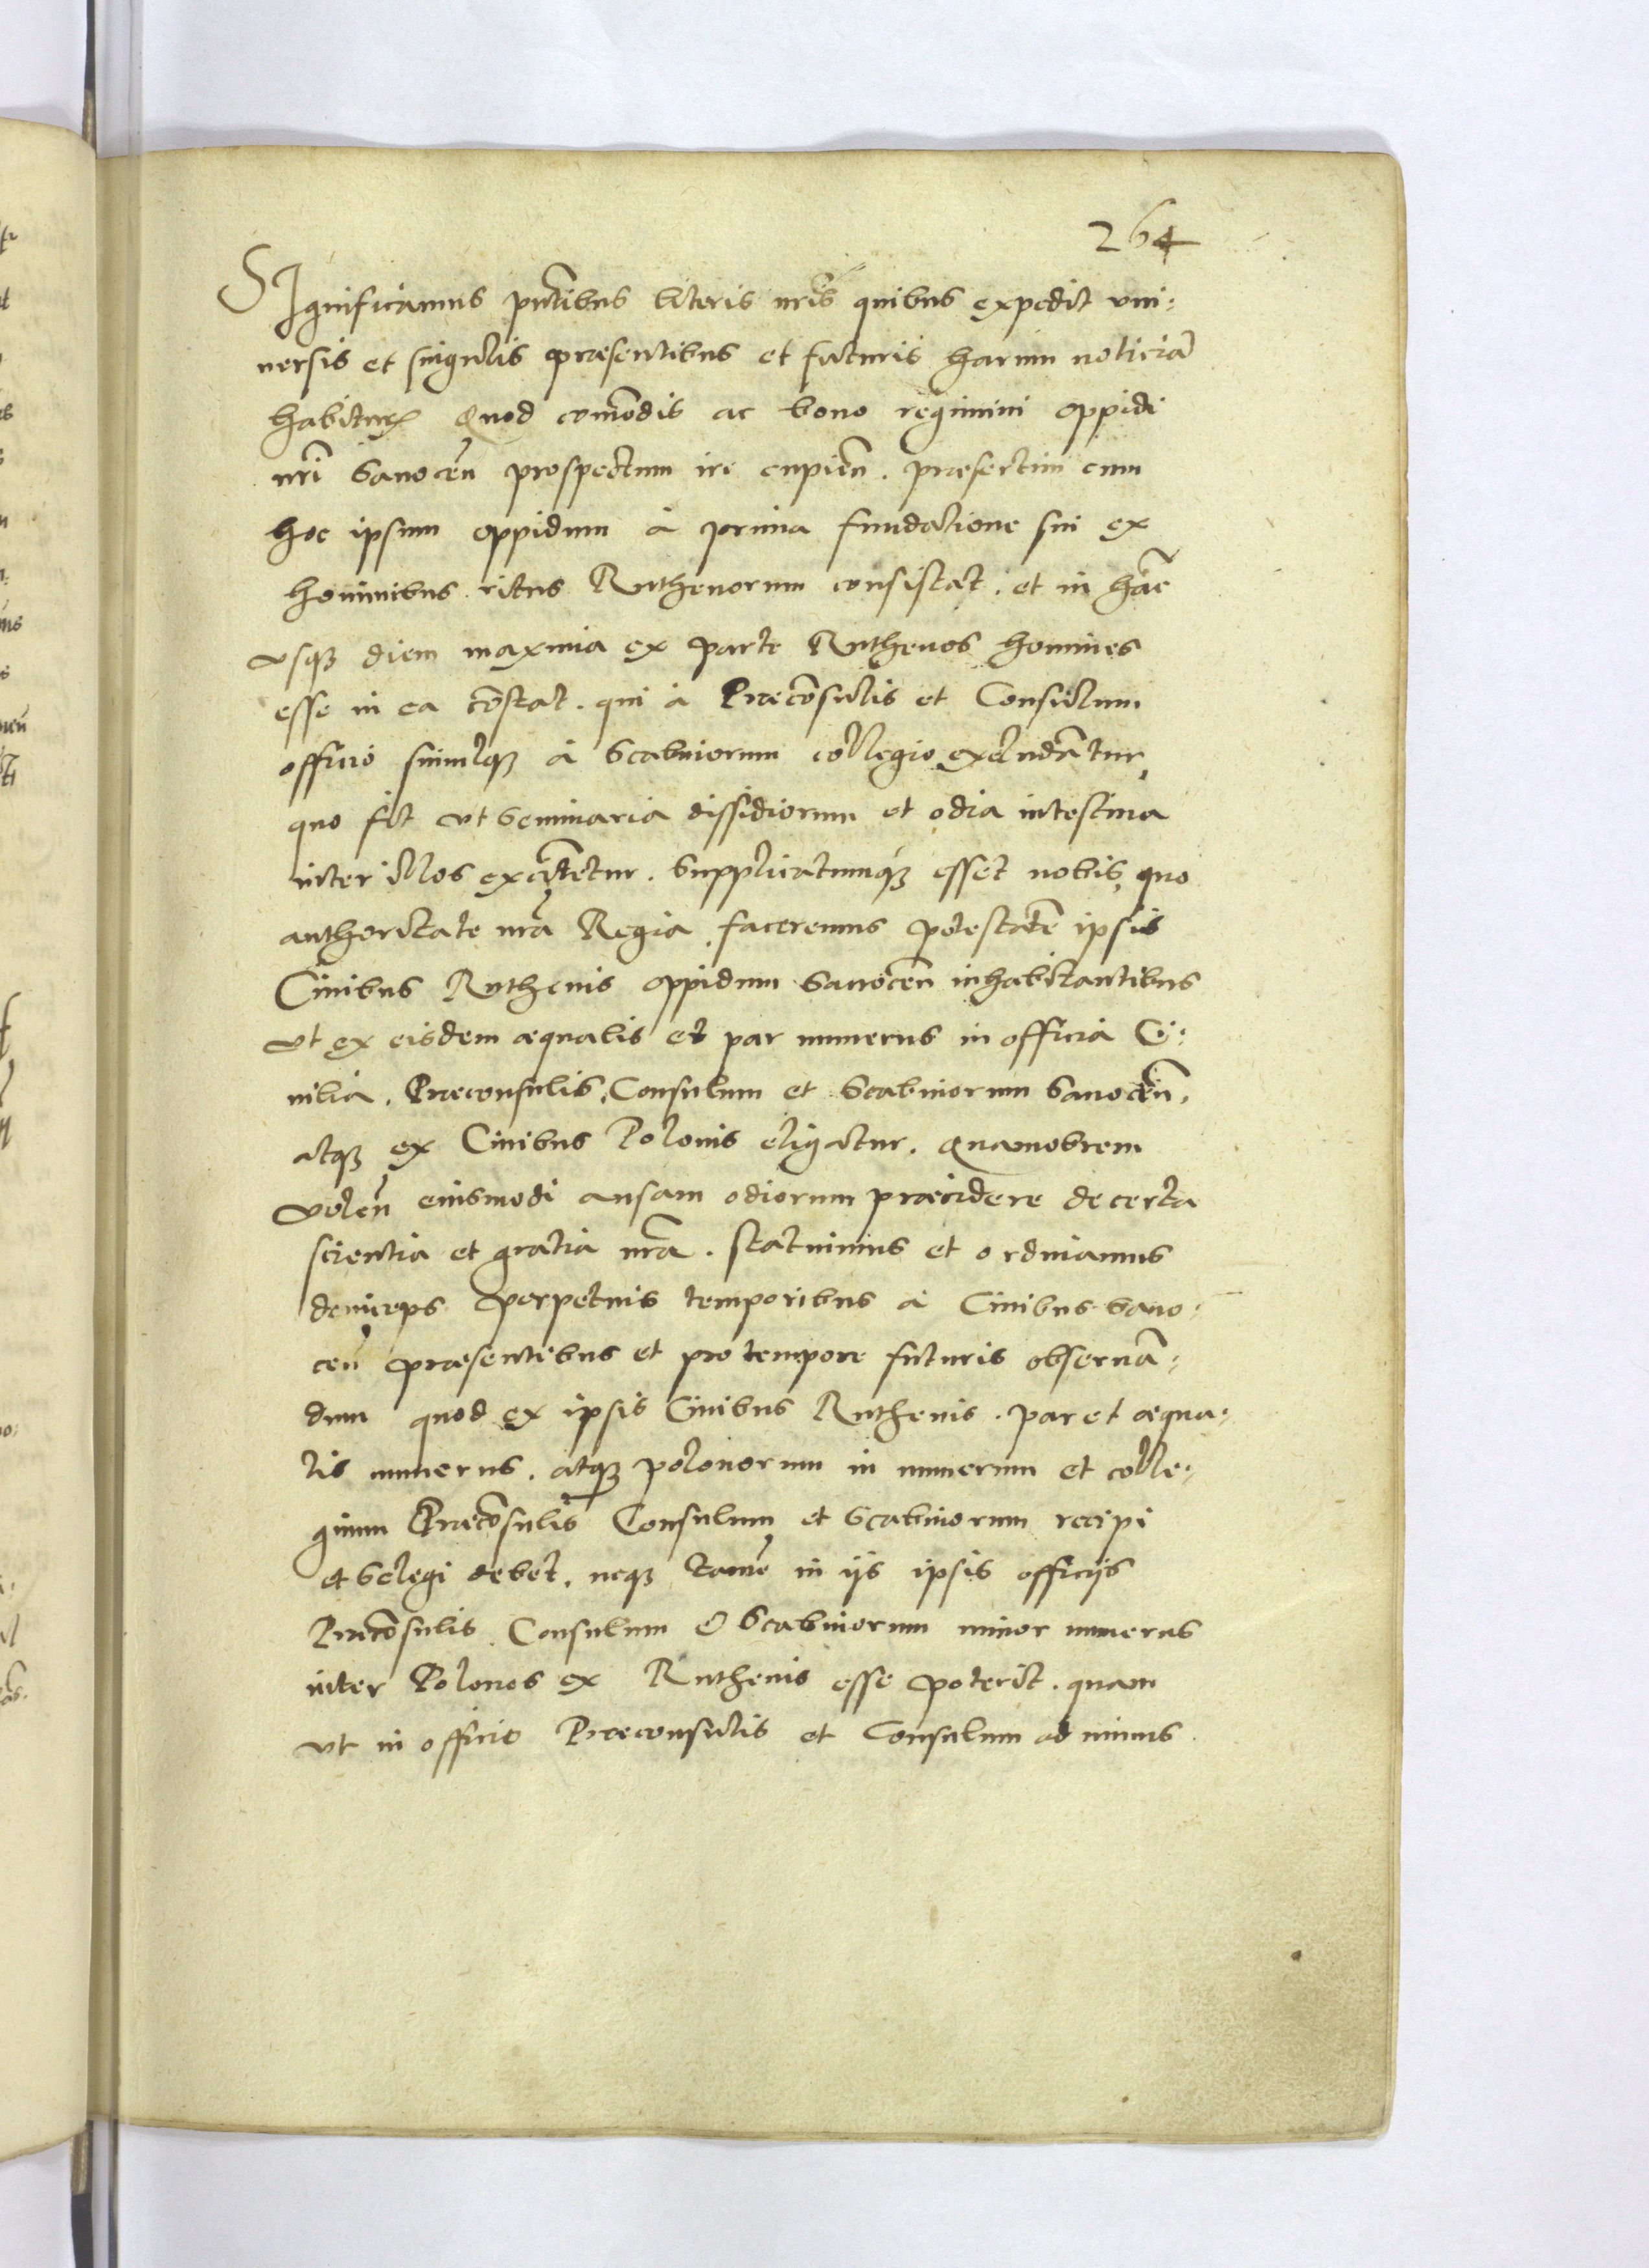 264
SIgnificamus pñtibus literis nr̃is quibus expedit vni:
uersis et singulis præsentibus et futuris harum noticiã
habiturꝝ Quod comõdis ac bono regimini oppidi
nr̃i Sanoceñ prospectum ire cupieñ. præsertim cum
hoc ipsum oppidum à prima fundatione sui ex
hominibus ritus Ruthenorum consistat. et in hãc
vsqꝫ diem maxima ex parte Ruthenos homines
esse in ea cõstat. qui à Præcõsulis et Consulum
officio simulqꝫ à Scabinorum collegio excludãtur,
quo fit vt seminaria dissidiorum et odia intestina
inter illos excitẽtur. Supplicatumqꝫ esset nobis, quo
authoritate nr̃a Regia, faceremus potestatẽ ipsis
Ciuibus Ruthenis oppidum Sanoceñ inhabitantibus
vt ex eisdem æqualis et par numerus in officia Ci:
uilia, Præconsulis, Consulum et Scabinorum Sanoceñ,
atqꝫ ex Ciuibus Polonis eligatur. Quamobrem
voleñ eiusmodi ansam odiorum præcidere de certa
scientia et gratia nr̃a. statuimus et ordinamus
deinceps perpetuis temporibus à Ciuibus Sano:
ceñ præsentibus et pro tempore futuris obseruã:
dum quod ex ipsis Ciuibus Ruthenis. par et æqua:
lis numerus. atqꝫ polonorum in numerum et colle:
gium Præcõsulis Consulum et Scabinorum recipi
et Selegi debet. neqꝫ tamẽ in ijs ipsis officijs
Præcõsulis, Consulum & Scabinorum minor numerus
inter Polonos ex Ruthenis esse poterit. quam
vt in officio Præconsulis et Consulum ad minus